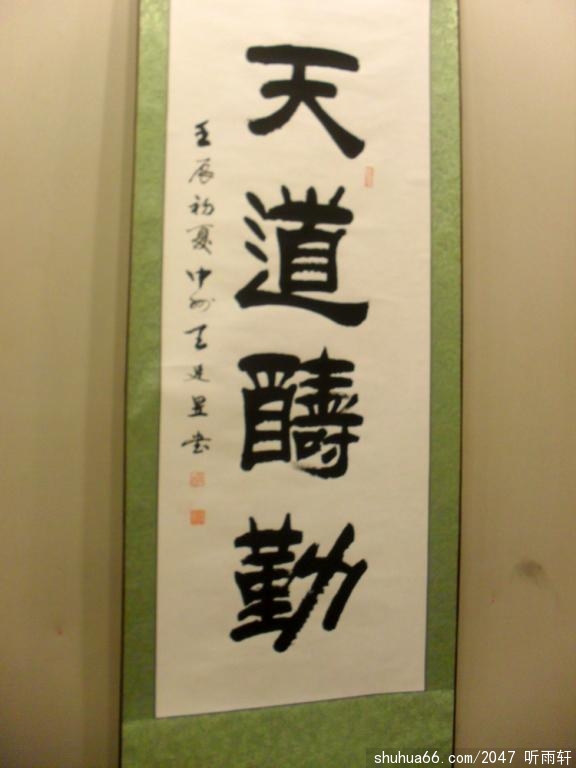 天道醻勤
壬辰初夏中州天是昱书
shuhua66.com/2047 听雨轩